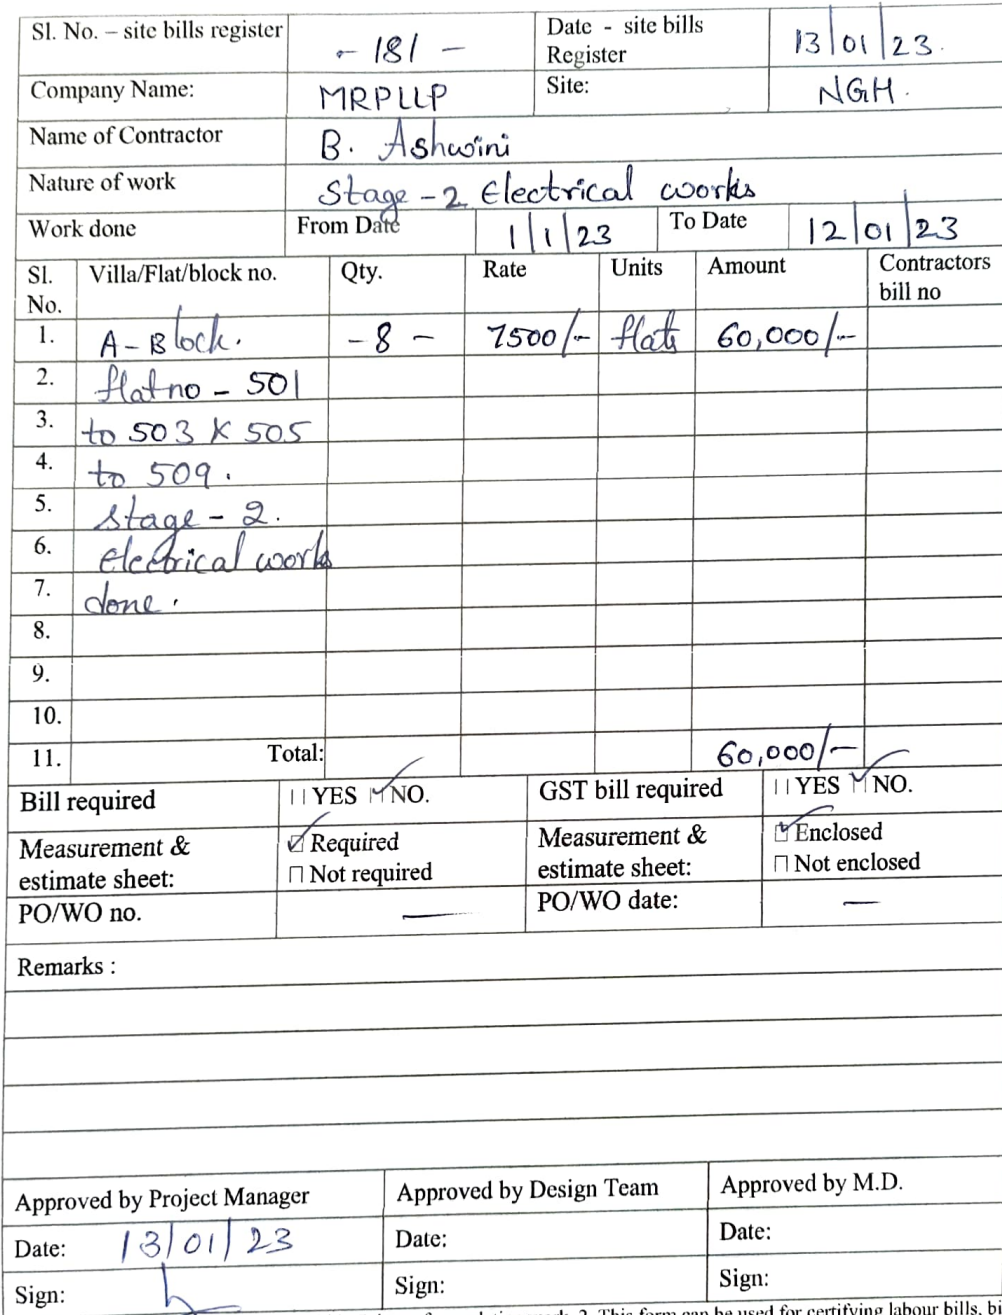 Sl. No. – site bills register - 181 - Date - site bills Register 13/01/23.
Company Name: MRPLLP Site: NGH.
Name of Contractor B. Ashwini
Nature of work Stage-2 Electrical works
Work done From Date 1/1/23 To Date 12/01/23
Sl. No. Villa/Flat/block no. Qty. Rate Units Amount Contractors bill no
1. A-Block. -8- 7500/- flats 60,000/-
2. flat no - 501
3. to 503 & 505
4. to 509.
5. Stage-2.
6. Electrical works
7. done.
8.
9.
10.
11. Total: 60,000/-
Bill required YES NO. GST bill required YES NO.
Measurement & estimate sheet: Required Not required Measurement & estimate sheet: Enclosed Not enclosed
PO/WO no. — PO/WO date: —
Remarks :
Approved by Project Manager Approved by Design Team Approved by M.D.
Date: 13/01/23 Date: Date:
Sign: Sign: Sign:
2. This form can be used for certifying labour bills,